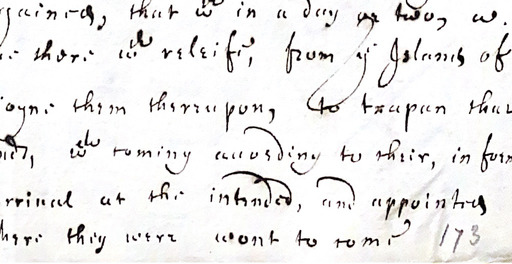 gained, that wch in a day or two, w.
there wth releife, from ye Islands of
oyne them thereupon, to trapan that
wch coming according to their, in form
rrival at the intended, and appointed
here they were wont to come 173